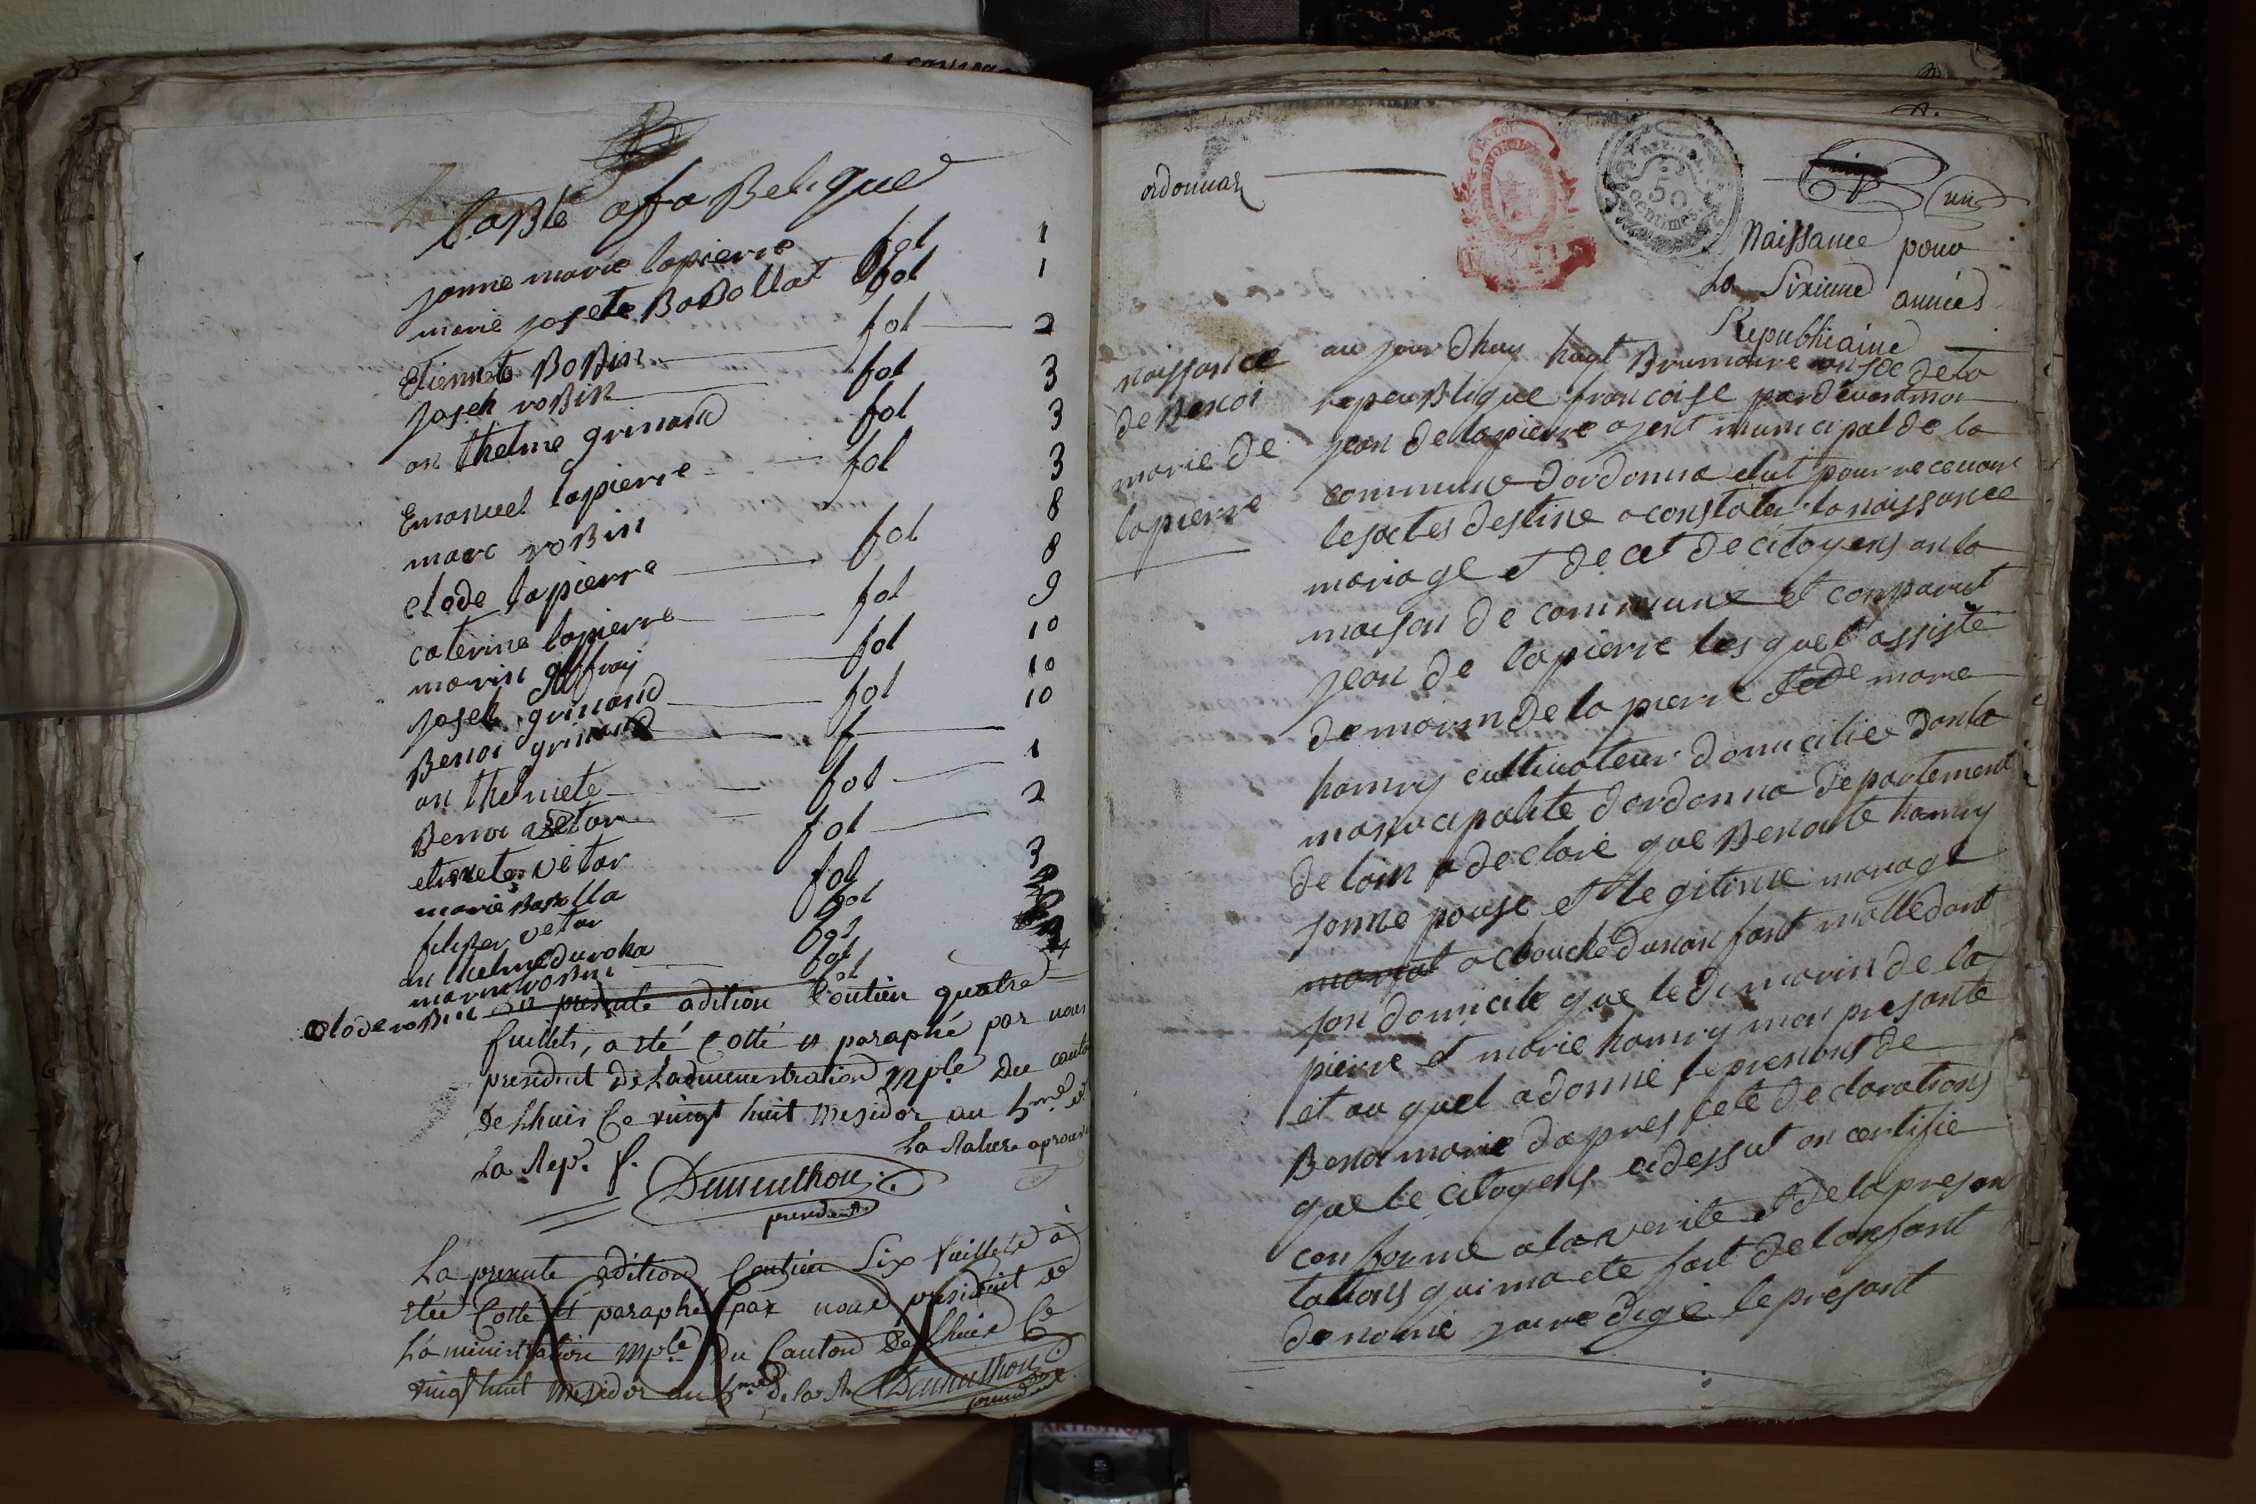 taBle afaBetique
janne marie lapierre fol 1
marie josete BaBollat fol 1
Etiennete RoBin fol 2
joseh roBin fol 3
an thelme grinand fol 3
Emanuel lapierre fol 3
marc roBin 8
clode lapierre fol 8
caterine lapierre fol 9
marin 10
joseh grinand fol 10
Benoi grinand fol 10
an thelmete f
Benoi vetar fol 1
etienete vetar fol 2
marie BaBolla fol 3
vetar fol
an thelme duroha fol
marin roBin fol 4
clode roBin fol
La presente adition Contien quatre
fuillets, a été Cotté et paraphé par nous
president De Ladministration mple Du canton
De Lhuis Ce vingt huit mesidor an 5me de
La Rep. f. La Rature aprouvé
president
La presente adition Contien Six fuillets à
étée Cotté et paraphé par nous president de
La ministration mple Du Canton De Lhuis Ce
vingt huit mesidor an 5me de la R.
president
ordonnaz
REP. FRA.
50
centimes
un
Naissance pour
La Sixieme années
Republicaine
naissance
de Benoi
marie de
lapierre
au jour dhuy huyt Brumaire an 6e de la
repeuBlique francoise pardevant moi
jean de lapierre ajent municipal de la
commune dordonna elut pour recevoir
lesactes destine a constater la naissance
mariage et de cet de citoyens an la
maison de commune et comparut
jean de lapierre les quel assiste
de marin de la pierre et de marie
hamry cultivateur domicilie dan la
manicipalite dordonna departement
de lain a declare que Benoite hamry
sonne pouse et le gitime mariage
a chouche dunan fant malle dant
son domicile que le di marin de la
pierre et marie hamry mon presante
et au quel a donné le prenons de
Benoi marie dapres cete declarations
que le citoyens cidessut on certifie
con forme a la verite et de la presan
tations qui ma ete fait de lanfant
denomé jai redige le presant